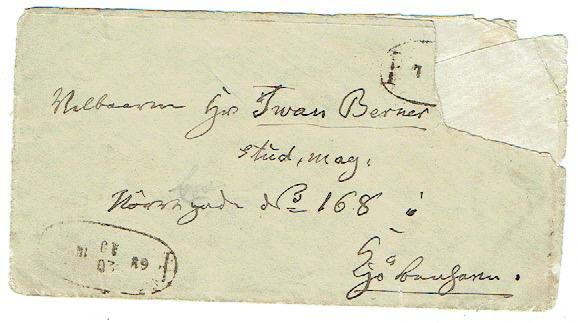 Velbaarne Hr Iwan Berner
stud, mag,
Nörregade 168 i
Kjöbenhavn.